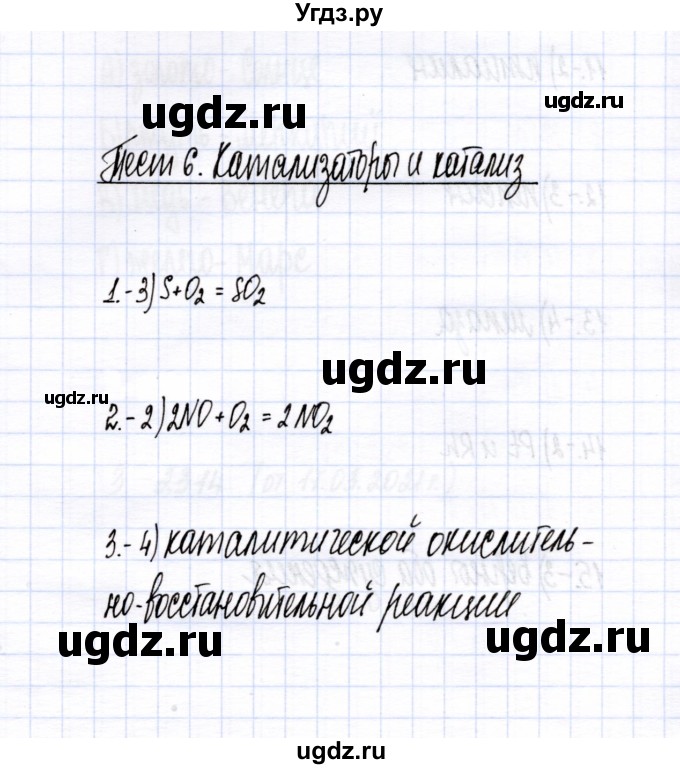 Угдз.ру
ugdz.ru
Тест 6. Катализаторы и катализ
1.-3) S+O₂ = SO₂
ugdz.ru
ugdz.ru
2.-2) 2NO+O₂ = 2NO₂
3.-4) каталитической окислитель-
но-восстановительной реакции
ugdz.ru
ugdz.ru
ugdz.ru